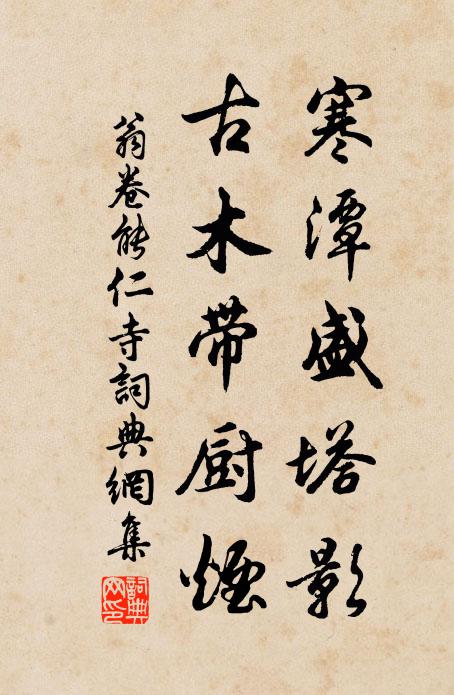 寒潭盛塔影
古木带厨煙
翁卷能仁寺詞典網集
詞典網印